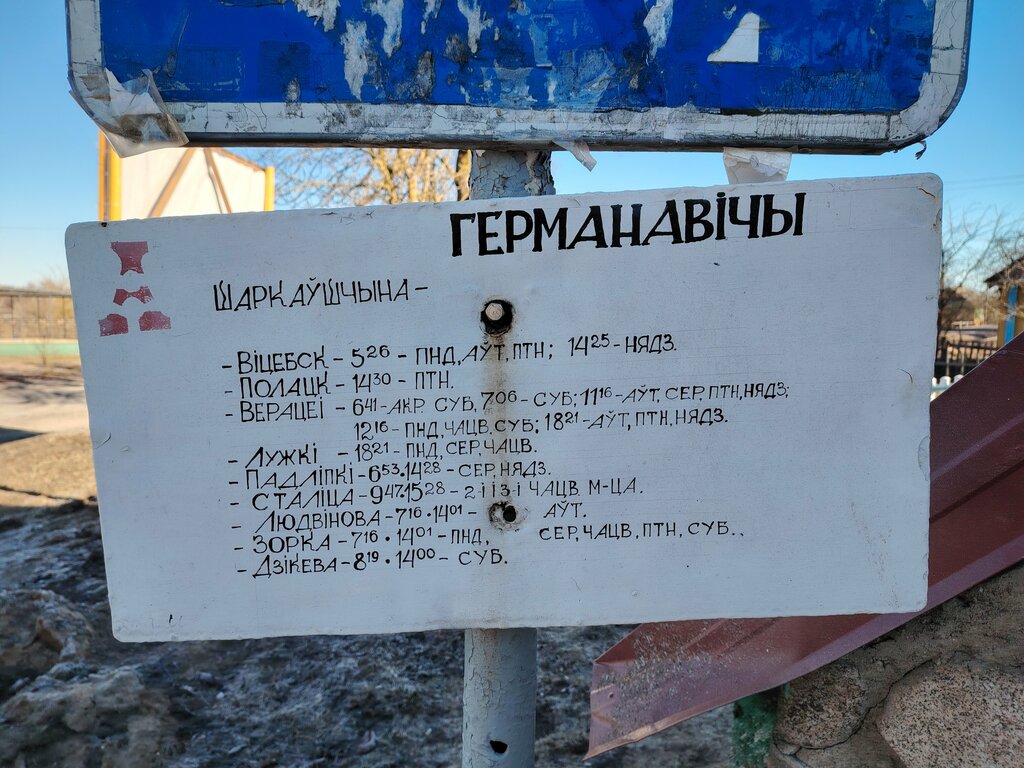 ГЕРМАНАВІЧЫ
ШАРКАЎШЧЫНА –
- ВІЦЕБСК – 5²⁶ – ПНД, АЎТ, ПТН; 14²⁵ – НЯДЗ.
- ПОЛАЦК – 14³⁰ – ПТН.
- ВЕРАЦЕІ – 6⁴¹ – АКР. СУБ, 7⁰⁶ – СУБ; 11¹⁶ – АЎТ, СЕР, ПТН, НЯДЗ;
12¹⁶ – ПНД, ЧАЦВ, СУБ; 18²¹ – АЎТ, ПТН, НЯДЗ.
- ЛУЖКІ – 18²¹ – ПНД, СЕР, ЧАЦВ.
- ПАДЛІПКІ – 6⁵³ · 14²⁸ – СЕР, НЯДЗ.
- СТАЛІЦА – 9⁴⁷ · 15²⁸ – 2 і 3 і ЧАЦВ. М-ЦА.
- ЛЮДВІНОВА – 7¹⁶ · 14⁰¹ – АЎТ.
- ЗОРКА – 7¹⁶ · 14⁰¹ – ПНД, СЕР, ЧАЦВ, ПТН, СУБ.
- ДЗІКЕВА – 8¹⁹ · 14⁰⁰ – СУБ.